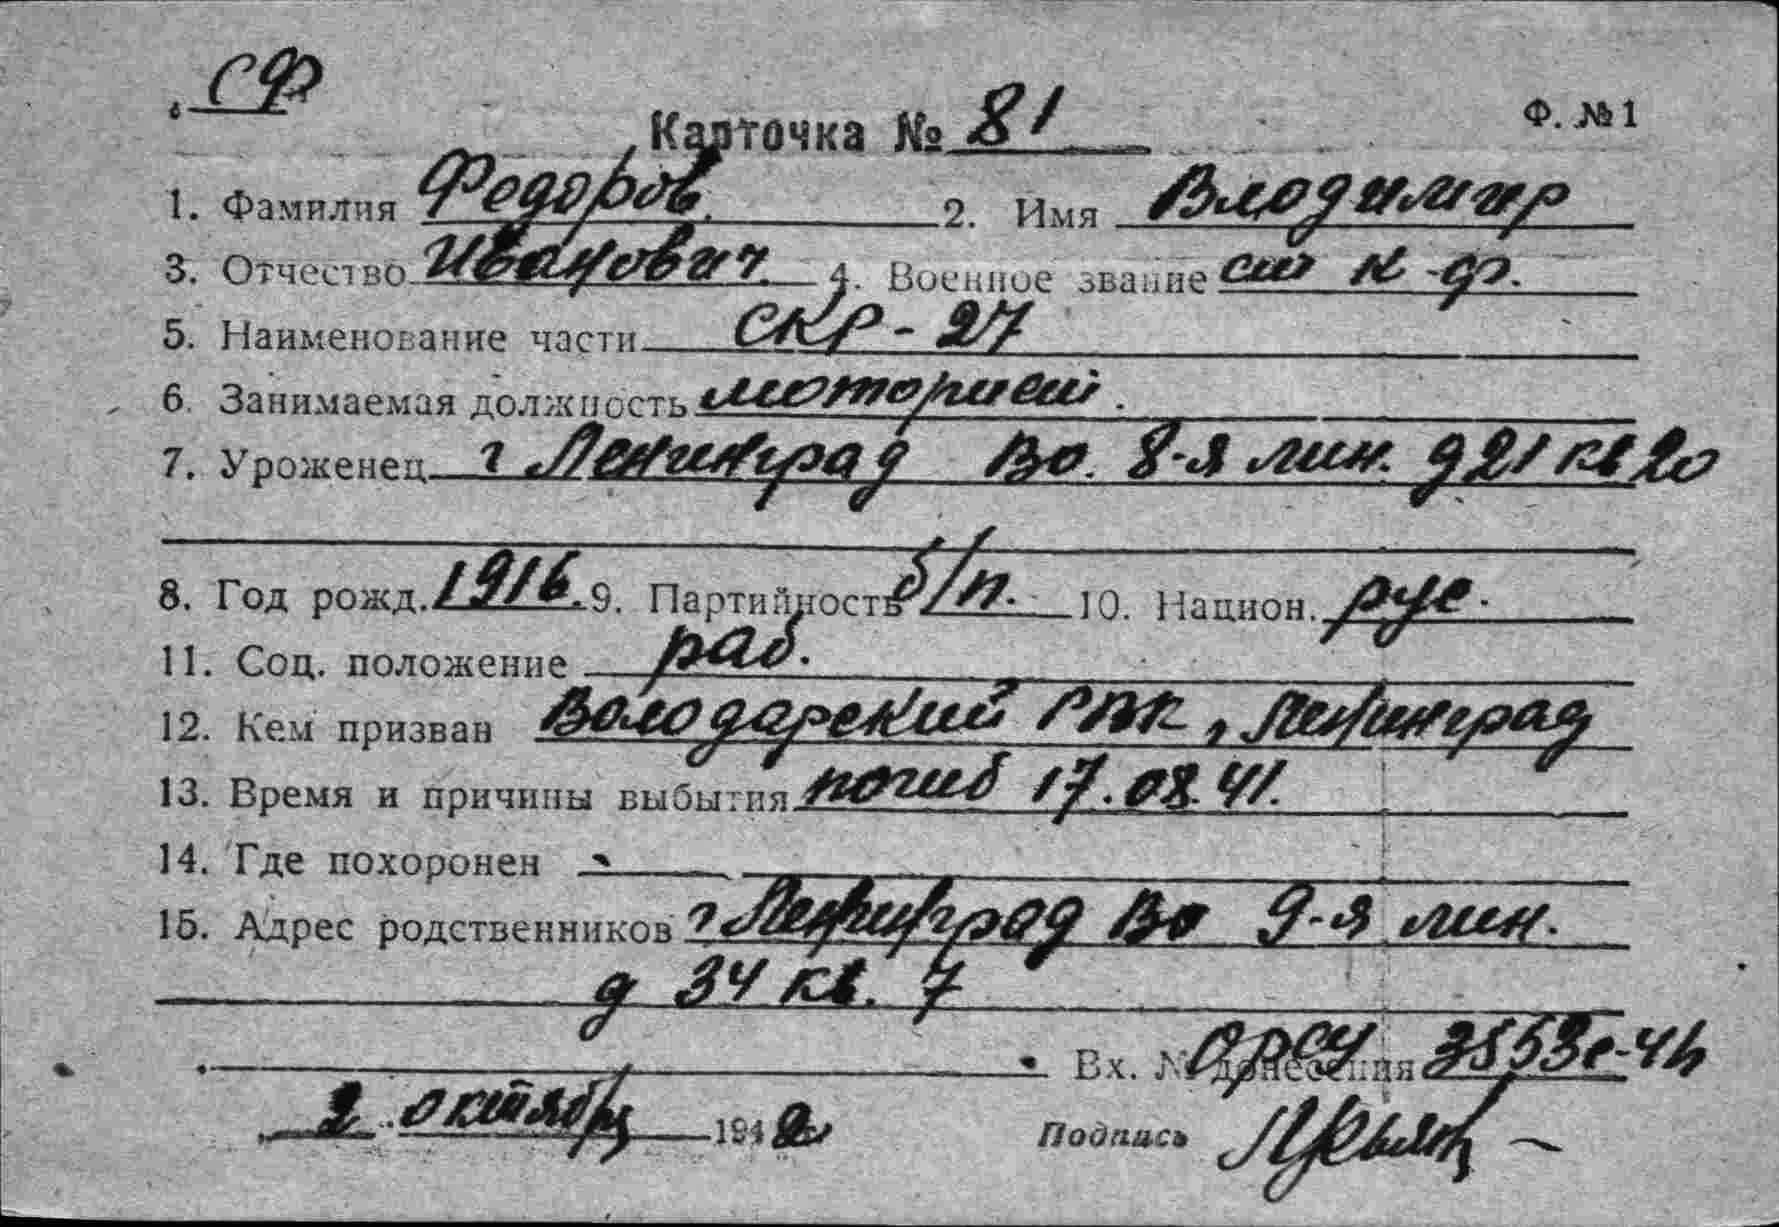 СФ
Карточка № 81
Ф. №1
1. Фамилия Федоров. 2. Имя Владимир
3. Отчество Иванович. 4. Военное звание ст к-ф.
5. Наименование части СКР-27
6. Занимаемая должность моторист.
7. Уроженец г Ленинград Во. 8-я лин. д 21 кв 20
8. Год рожд. 1916. 9. Партийность б/п. 10. Национ. рус.
11. Соц. положение раб.
12. Кем призван Володарский РВК, Ленинград
13. Время и причины выбытия погиб 17.08.41.
14. Где похоронен
15. Адрес родственников г Ленинград Во 9-я лин.
д 34 кв. 7
Вх. № донесения ОРСУ
2 октября 1942
Подпись